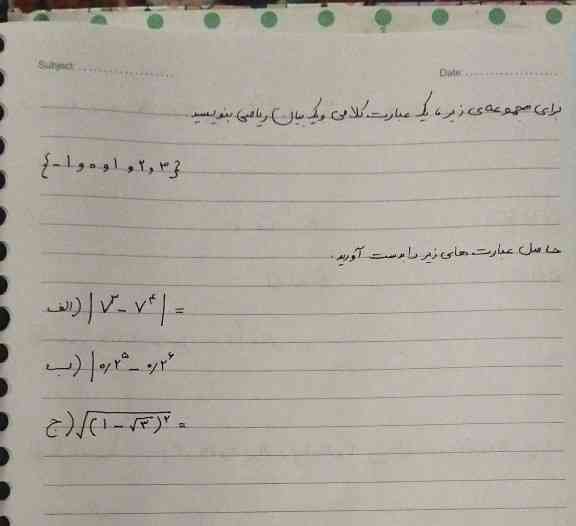 Subject: ....................
Date: ....................
برای مجموعه‌ی زیر، یک عبارت کلامی و یک بیان ریاضی بنویسید.
{-۱,۰,۱,۲,۳}
حاصل عبارت های زیر را بدست آورید.
الف) |۷^۳ - ۷^۴| =
ب) |۰/۲^۵ - ۰/۲^۶
ج) √(۱ - √۳)^۲ =